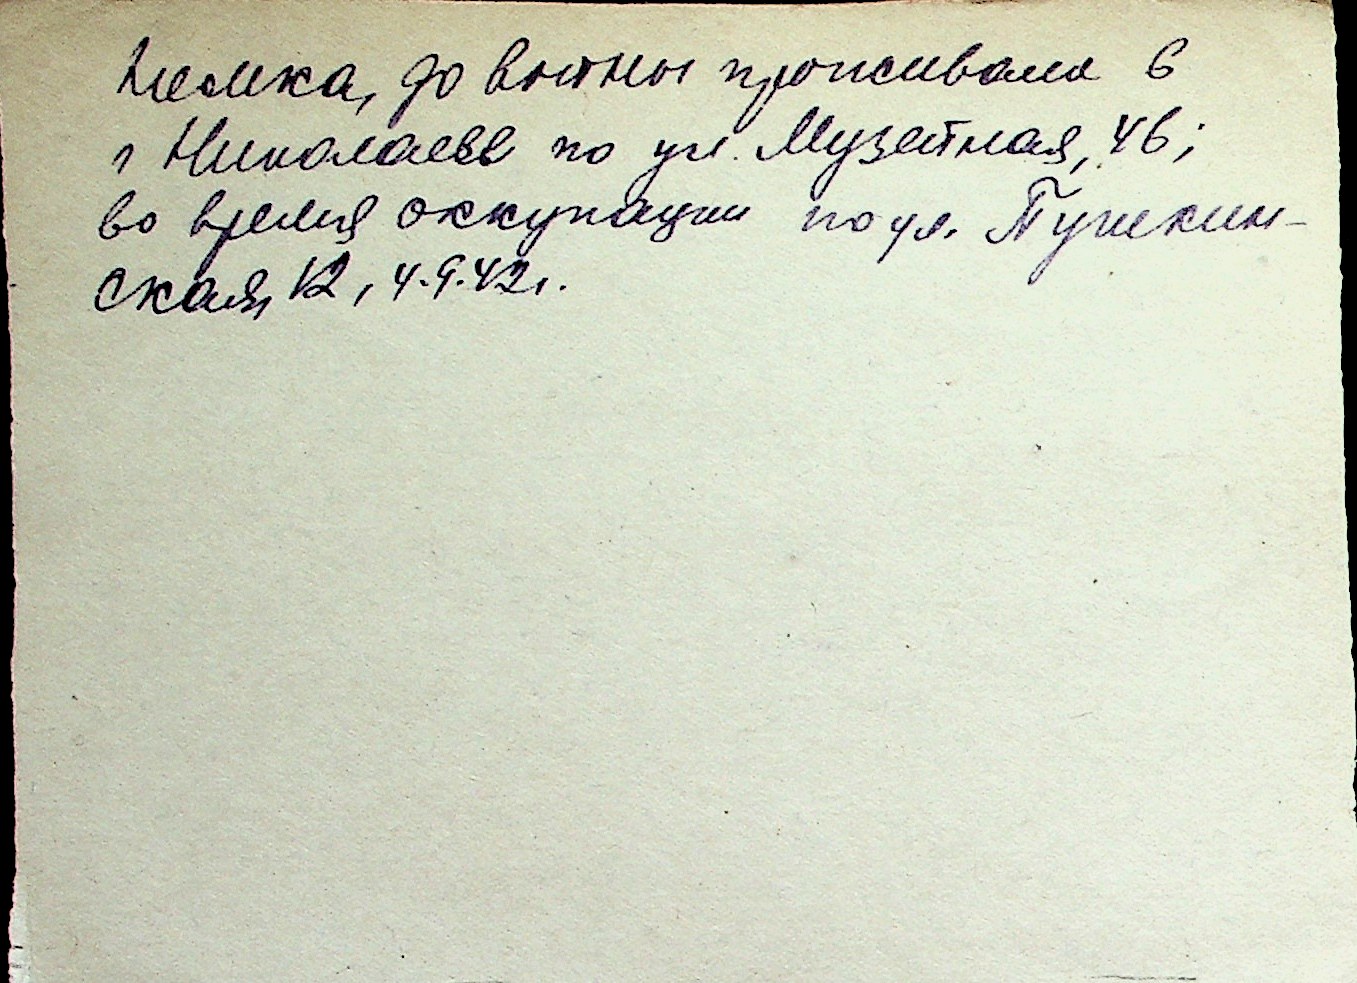 немка, до войны проживала в
г Николаеве по ул. Музейная, 46;
во время оккупации по ул. Пушкин-
ская, 12, 4.9.42г.